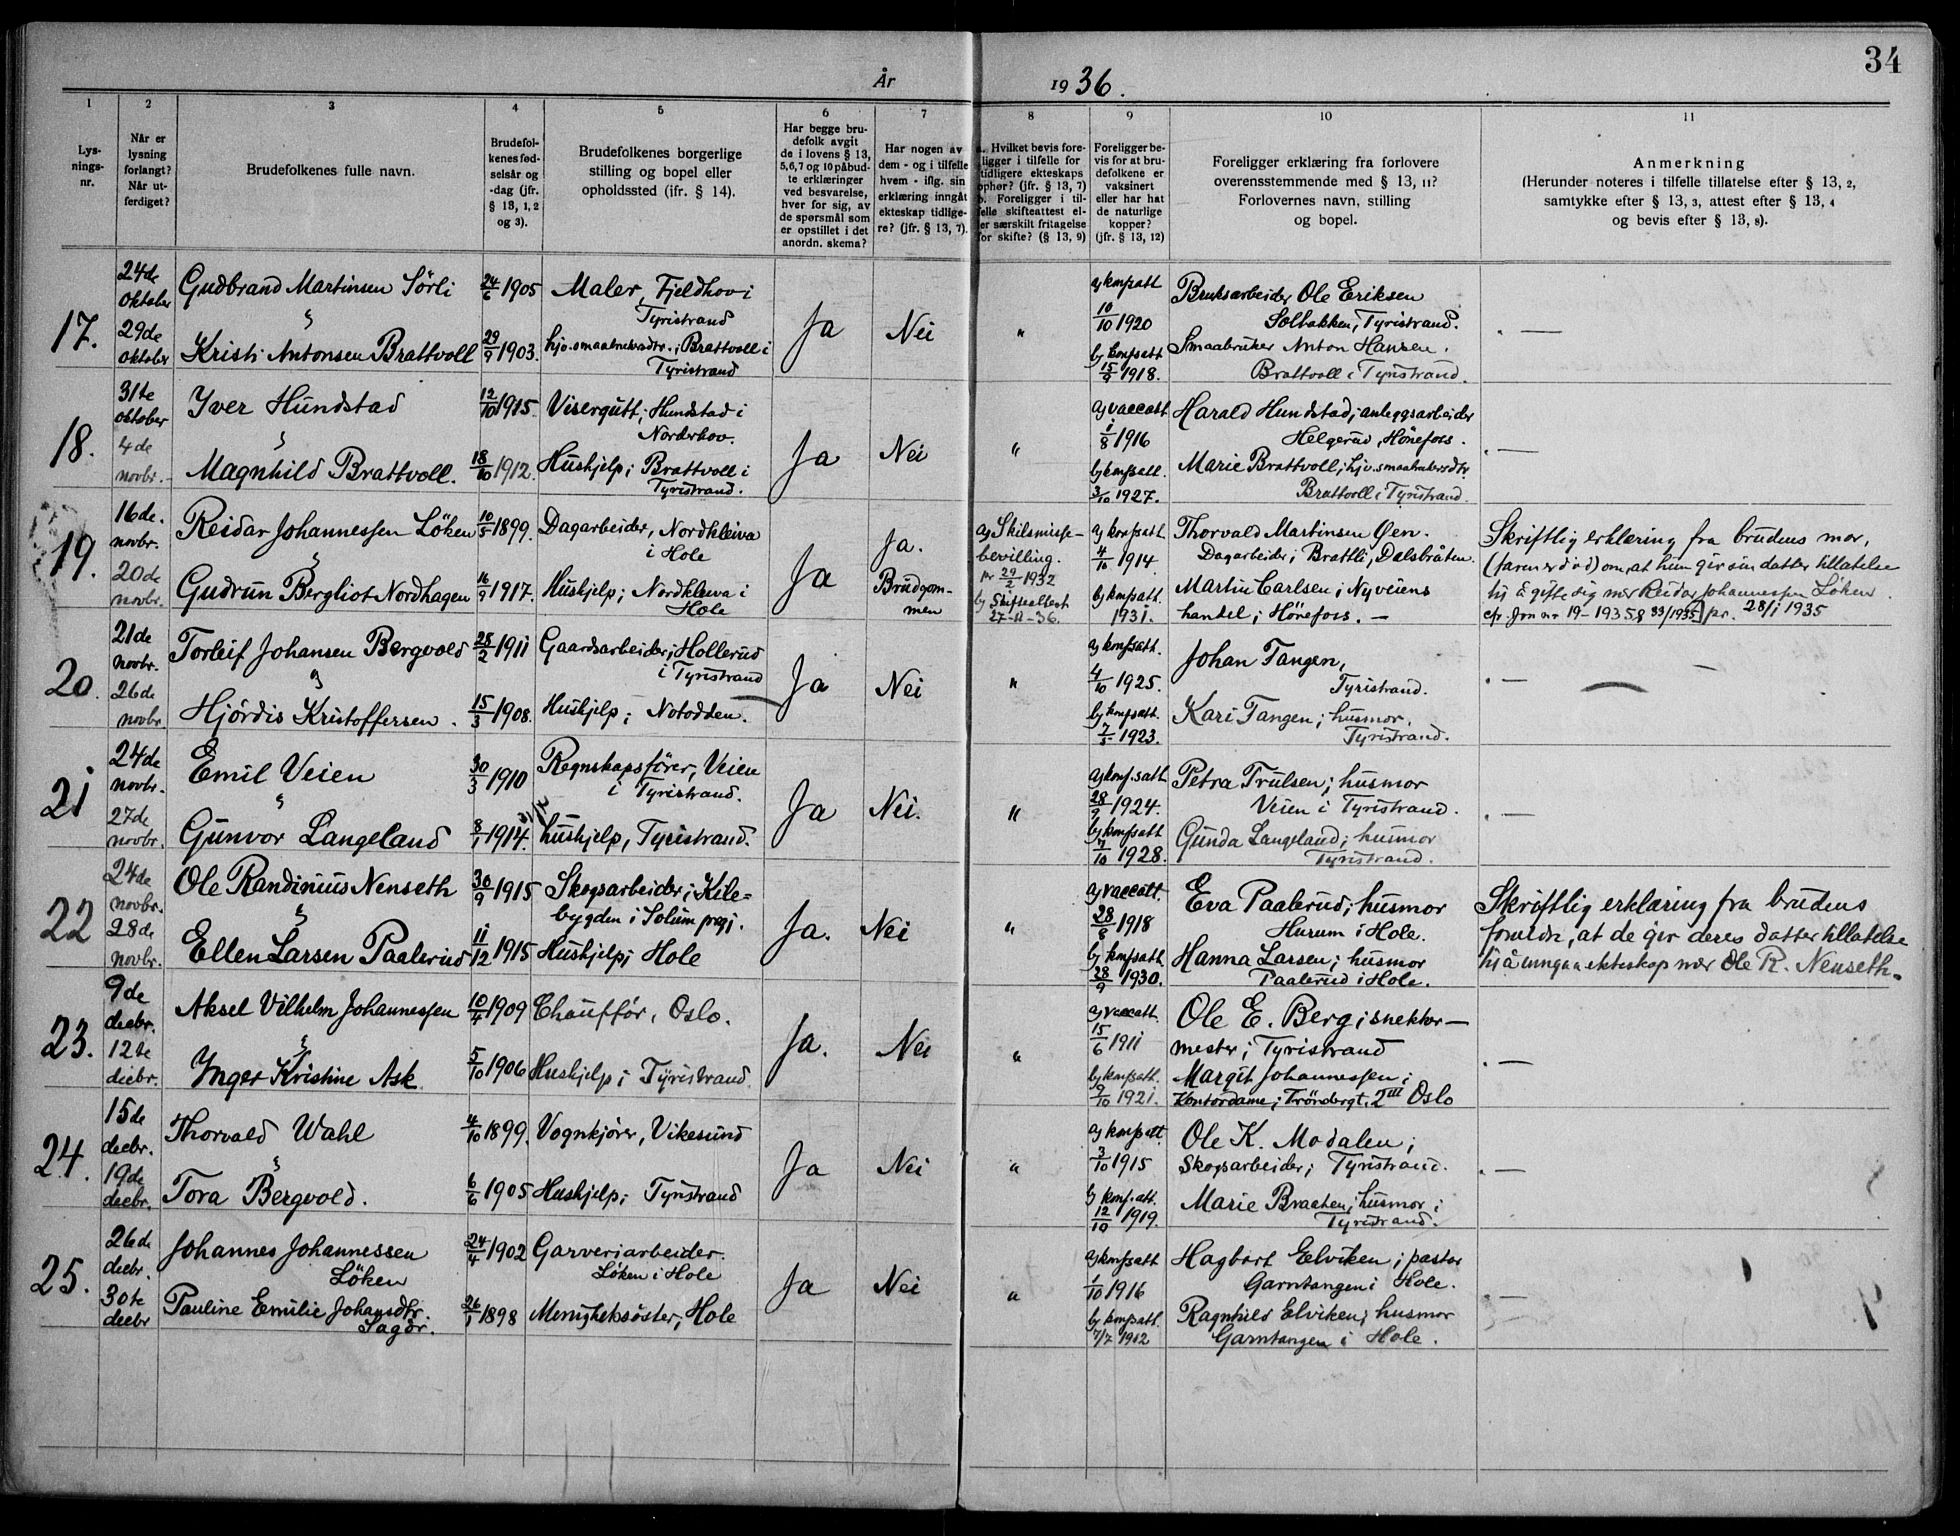 34
År 1936.
1
2
3
4
5
6
7
8
9
10
11
Lys-
nings-
nr.
Når er
lysning
forlangt?
Når ut-
ferdiget?
Brudefolkenes fulle navn.
Brudefol-
kenes fød-
selsår og
-dag (jfr.
§ 13, 1, 2
og 3).
Brudefolkenes borgerlige
stilling og bopel eller
opholdssted (ifr. § 14).
Har begge bru-
defolk avgit
de i lovens § 13,
5,6,7 og 10 påbud-
te erklæringer
ved besvarelse,
hver for sig, av
de spørsmål som
er opstillet i det
anordn. skema?
Har nogen av
dem - og i tilfelle
hvem - iflg. sin
erklæring inngåt
ekteskap tidlige-
re? (jfr. § 13, 7).
a. Hvilket bevis fore-
ligger i tilfelle for
tidligere ekteskaps
ophør? (jfr. § 13, 7)
b. Foreligger i til-
felle skifteattest el-
ler særskilt fritagelse
for skifte? (§ 13, 9)
Foreligger be-
vis for at bru-
defolkene er
vaksinert
eller har hat
de naturlige
kopper?
(jfr. § 13, 12)
Foreligger erklæring fra forlovere
overensstemmende med § 13, 11?
Forlovernes navn, stilling
og bopel.
Anmerkning
(Herunder noteres i tilfelle tillatelse efter § 13, 2,
samtykke efter § 13, 3, attest efter § 13, 4
og bevis efter § 13, 8).
17.
24de
oktober
29de
oktober
Gudbrand Martinsen Sörli
"
Kristi Antonsen Brattvoll
24/6 1905
29/9 1903.
Maler, Fjeldhov i
Tyristrand
hjv. smaabrukerdtr.; Brattvoll i
Tyristrand
Ja
Nei
"
a) konf.att
10/10 1920
b) konf.att
15/9 1918.
Bruksarbeider Ole Eriksen
Solbakken, Tyristrand.
Smaabruker Anton Hansen.
Brattvoll i Tyristrand.
" —
18.
31te
oktober
4de
novbr.
Iver Hundstad
"
Magnhild Brattvoll.
12/10 1915.
18/10 1912.
Visergutt; Hundstad i
Norderhov.
Hushjelp; Brattvoll i
Tyristrand.
Ja
Nei
"
a) vaccatt
1/8 1916
b) konf.att.
3/10 1927.
Harald Hundstad; anleggsarbeider
Helgerud, Hönefoss.
Marie Brattvoll; hjv. smaabrukerdtr.
Brattvoll i Tyristrand.
" —
19.
16de
novbr.
20de
novbr.
Reidar Johannessen Löken
"
Gudrun Bergliot Nordhagen
10/5 1899.
16/9 1917.
Dagarbeider, Nordkleiva
i Hole
Hushjelp; Nordkleiva i
Hole
Ja
Ja.
Brudgom-
men
a) Skilsmisse-
bevilling.
pr 29/2 1932
b) Skifteattest
27-11-36.
a) konf.att
4/10 1914
b) konf.att.
1931.
Thorvald Martinsen Öen.
Dagarbeider; Brattli, Dalsbråten.
Martin Carlsen; Nyveiens
handel; Hönefoss. —
Skriftlig erklæring fra brudens mor,
(faren er död) om, at hun gir sin datter tillatelse
til å gifte sig med Reidar Johannessen Löken.
cfr. Jnn nr 19-1935 & 33/1935 pr. 28/1 1935
20.
21de
novbr.
26de
novbr.
Torleif Johansen Bergvold
"
Hjördis Kristoffersen.
28/2 1911
15/3 1908.
Gaardsarbeider; Hollerud
i Tyristrand
Hushjelp; Notodden.
Ja
Nei
"
a) konf.att.
4/10 1925.
b) konf.att.
7/5 1923.
Johan Tangen,
Tyristrand.
Kari Tangen; husmor.
Tyristrand.
" —
21
24de
novbr.
27de
novbr.
Emil Veien
"
Gunvor Langeland
30/3 1910
8/1 1914.
Regnskapsförer, Veien
i Tyristrand.
hushjelp, Tyristrand.
Ja
Nei.
"
a) konf.att
28/9 1924.
b) konf.att
7/10 1928.
Petra Trulsen; husmor
Veien i Tyristrand.
Gunda Langeland; husmor
Tyristrand.
" —
22
24de
novbr.
28de
novbr.
Ole Randinius Nenseth
"
Ellen Larsen Paalerud
30/9 1915
11/12 1915
Skogsarbeider; Kile-
bygden i Solum pregj.
Hushjelp; Hole
Ja.
Nei
"
a) vaccatt.
28/8 1918
b) konf.att
28/9 1930.
Eva Paalerud; husmor
Hurum i Hole.
Hanna Larsen; husmor
Paalerud i Hole.
Skriftlig erklæring fra brudens
foreldre, at de gir deres datter tillatelse
til å inngaa ekteskap med Ole R. Nenseth.
23.
9de
decbr.
12te
decbr.
Aksel Vilhelm Johannessen
"
Inger Kristine Ask
10/4 1909
5/10 1906
Chaufför, Oslo.
Hushjelp; Tyristrand
Ja.
Nei
"
a) vaccatt.
15/6 1911
b) konf.att.
9/10 1921.
Ole E. Berg; snekker-
mester; Tyristrand
Margit Johannessen;
Kontordame; Tröndergt. 2III Oslo
" —
24.
15de
decbr.
19de
decbr.
Thorvald Wahl
"
Tora Bergvold.
4/10 1899.
6/6 1905
Vognkjörer, Vikesund
Hushjelp; Tyristrand
Ja
Nei
"
a) konf.att.
3/10 1915
b) konf.att.
12/10 1919.
Ole K. Modalen;
Skogsarbeider; Tyristrand.
Marie Braaten; husmor i
Tyristrand.
" —
25.
26de
decbr.
30te
decbr
Johannes Johannessen
Löken
Pauline Emilie Johansdtr.
Sagör.
24/4 1902
26/1 1898
Garveriarbeider.
Löken i Hole
Menighetssöster, Hole
Ja
Nei
"
a) konf.att
1/10 1916
b) konf.att
7/7 1912
Hagbart Elviken; pastor
Garntangen i Hole.
Ragnhild Elviken; husmor
Garntangen i Hole.
" —